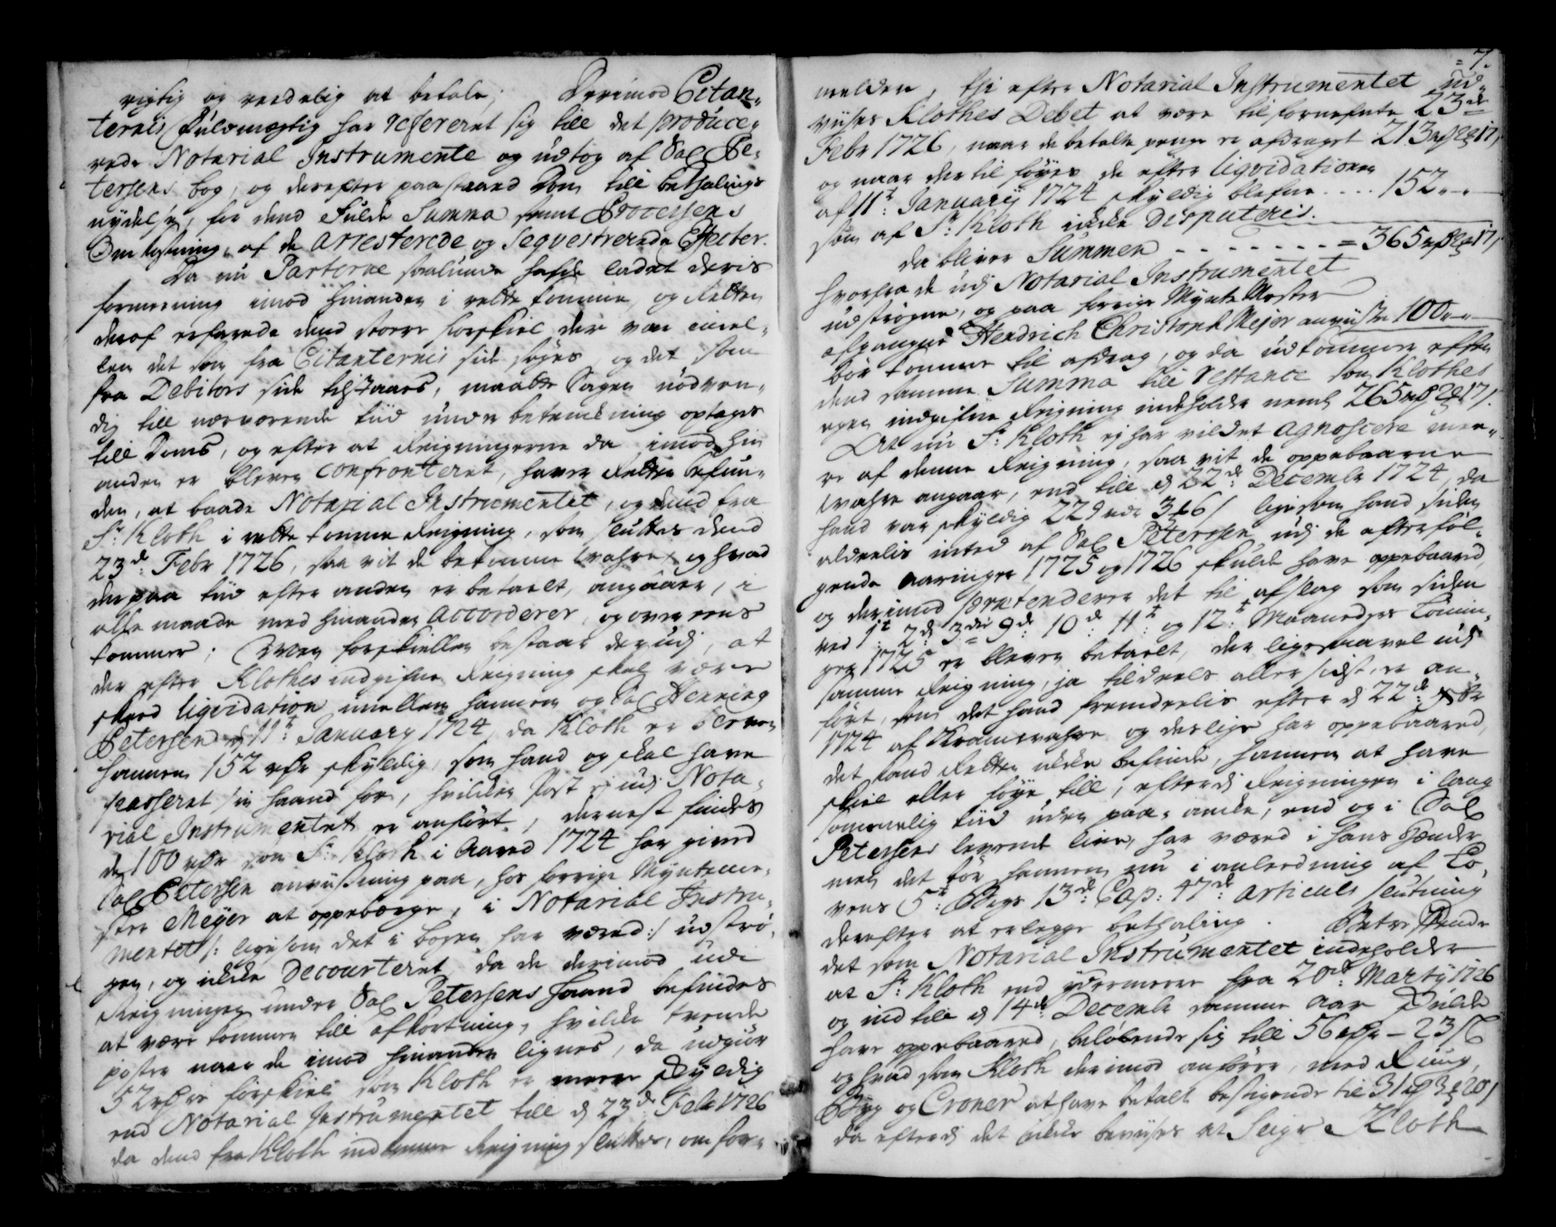 rigtig og reedelig at betale, Derimod Citan-
ternis fuldmægtig har refereret sig till det produce-
rede Notarial Instrumente og udtog af Sal Pe-
tersens bog, og derefter paastaaed Dom till bethalings
nydelse, for dend fulde Summa samt Processens
Omkostning, af de Arresterede og Sequestrerede Effecter.
Da nu Parterne saaledes hafde ladet deris
formeening imod hinanden i rette komme, og Retten
deraf erfarede dend store forskiel der var imel-
len det som fra Citanternis side søges, og det som
fra Debitors side tilstaaes, maatte Sagen nødven-
dig till nærværende tiid under betenkning optages
till Doms, og efter at Reigningerne da imod hin
anden er bleven Confronteret, haver Retten befun-
den, at baade Notarial Instrumentet, og dend fra
Sr Kloth i rette komne Reigning, som sluttes dend
23de Febr 1726, saa vit de bekomne vahre og hvad
derpaa tiid efter anden er betaelt, angaaer, i
alle maade med hinanden Accorderer, og overeens
kommer; Men forskiellen bestaar derudj, at
der efter Klothes indgifne Reigning skal være
skeed liqvidation imellem hannem og Sal Henning
Petersen d 11te January 1724, da Kloth er bleven
hannem 152 rdr skyldig, som hand og skal have
passeret sin haand for, hvilken Post ej udj Nota-
rial Instrumentet er anført, dernest findes
de 100 rdr som Sr Kloth i Aared 1724 har gived
Sal Petersen anviisning paa, hos forrige Myntme-
ster Meyer at oppebærge, i Notarial Instru-
mentet /: ligesom det i bogen har været :/ udstrø-
gen, og ikke Decourteret, da de derimod ude
Reigningen under Sal Petersens haand befindes
at være kommen till afkortning, hvilke tvende
poster naar de imod hinanden lignes, da udgiør
52 rdr forskiel som Kloth er meere skyldig
end Notarial Instrumentet till d 23de Febr 1726
da dend fra Kloth indkomne Reigning sluttes, om for-
=7.
melder, thi efter Notarial Instrumentet ud-
viises Klothes Debet at være til fornefnte 23de
Febr 1726, naar de betalte penge er afdraget 213 rdr 17
og naar dertil føyes de efter liqvidationen
af 11te January 1724 skyldig blefne ... 152 -
som af Sr Kloth ikke Disputeris.
da bliver Summen - - - - - - - = 365 17
hvorfra de udj Notarial Instrumentet
udstrøgne, og paa forrige Mynte Mester
afgangne Hendrich Christoph Meyer anviiste 100 -
bør komme til afdrag, og da udkommer efter
dend samme Summa till Restance som Klothes
egen indgifne Reigning indeholder neml 265 17
At nu Sr Kloth ej har vildet agnoscere mee-
re af denne Reigning, saa vit de oppebaarne
vahre angaar, end till d 22de December 1724, da
hand var skyldig 229 rdr, ligesom hand siden
aldeelis inted af Sal Petersen udj de efterføl-
gende Aaringer 1725 og 1726 skulde have oppebaared,
og derimod prætenderer det til afslag som siden
ved 1te 2de 3die 9de 10de 11te og 12te Maaneders Termin
gen 1725 er bleven betaelt, der ligesaavel udj
samme Reigning, ja tildeels aller sidst er an-
ført, som det hand fremdeelis efter d 22de
1724 af Kramvahre og deslige har oppebaaret,
det kand Retten ikke befinde hannem at have
skiel eller føye till, efterdj Reigningen i lang
sommelig tiid uden paa-anke, end og i Sal
Petersens levende live, har værred i hans hænder
men det bør hannem nu i anledning af Lo-
vens 5te Bogs 13de Cap: 47de Articuls slutning
derefter at erlegge bethaling. Betreffende
det som Notarial Instrumentet indeholder
at Sr Kloth end ydermeere fra 20de Marty 1726
og ind till d 14de Decembr samme Aar skulde
have oppebaared, beløbende sig till 56 - 23 s
og hvad som Kloth derimod anfører, med Ruug,
Byg og Croner at have betalt bestigende til 31 3 20 s
da efterdj det ikke bevises at Seigr Kloth